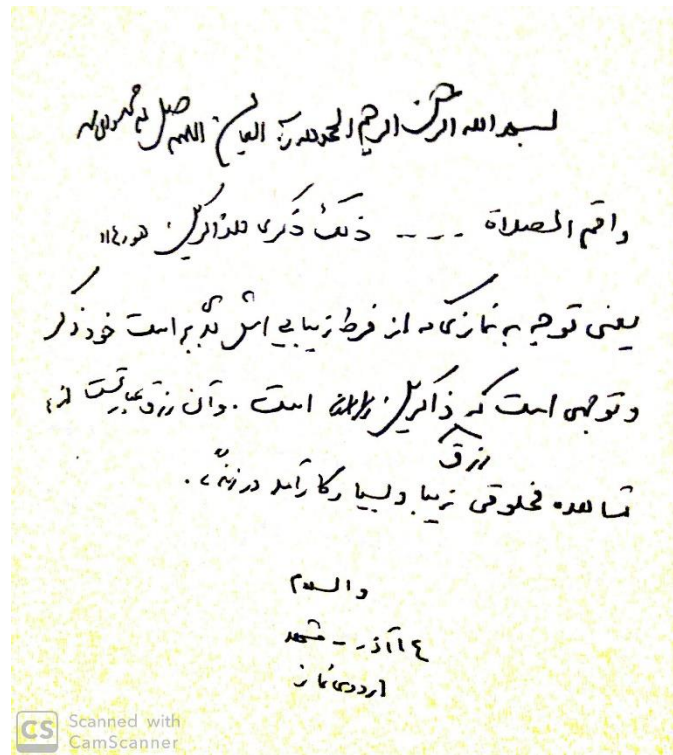 بسم الله الرحمن الرحیم الحمدلله رب العالمین اللهم صل علی محمد و آل محمد
واقم الصلاة ---- ذلک ذکری للذاکرین هود ۱۱۴
یعنی توجه به نمازی که از فرط زیبایی اش است خود ذکر
و توجهی است که ذاکرین را است. و آن رزق عبارتست از
رزق
مشاهده مخلوقی زیبا و بسیار کارآمد در
والسلام
۱۴ آذر - مشهد
اردوی نماز
CS Scanned with
CamScanner